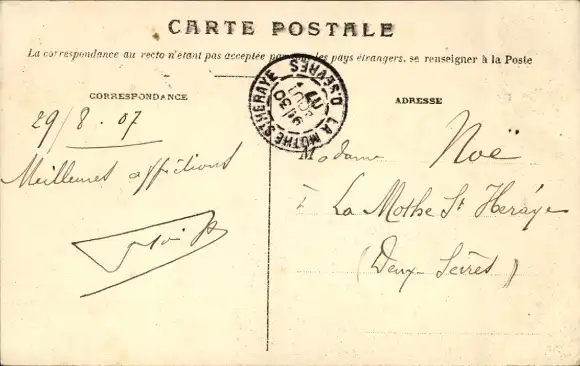 CARTE POSTALE
La correspondance au recto n'étant pas acceptée par tous les pays étrangers, se renseigner à la Poste
CORRESPONDANCE
29/8.07
Meilleures affections
ADRESSE
LA MOTHE-ST-HERAYE
D. SEVRES
Madame Noë
à La Mothe St Heráye
(Deux-Sèvres)